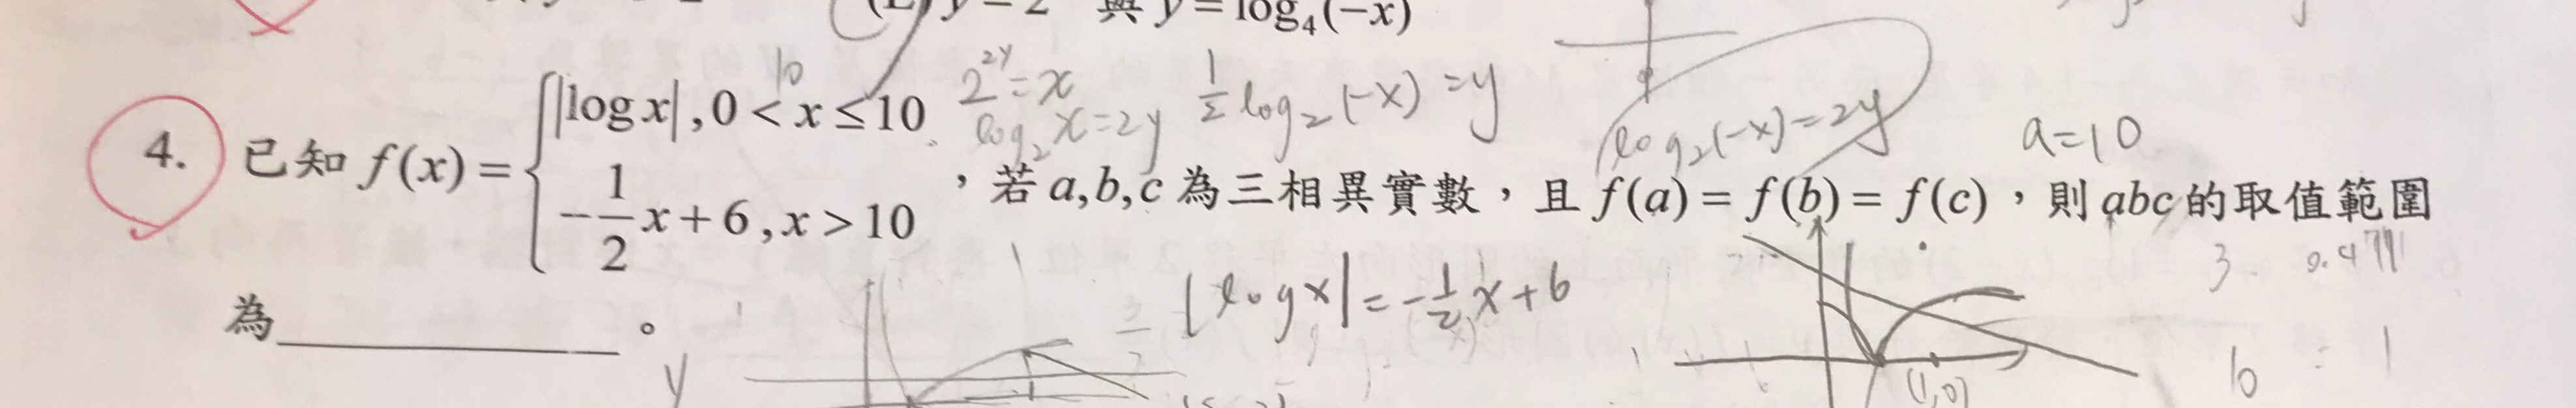 y = 2 與 y = log₄(−x)
10
2^{2y} = x
log₂x = 2y
1/2 log₂(−x) = y
log₂(−x) = 2y
a=10
4. 已知 f(x) = { |log x| , 0 < x ≤ 10
−1/2 x + 6 , x > 10 ，若 a,b,c 為三相異實數，且 f(a) = f(b) = f(c)，則 abc 的取值範圍
3
為________。
|log x| = −1/2 x + 6
y
1
(1,0)
b
1